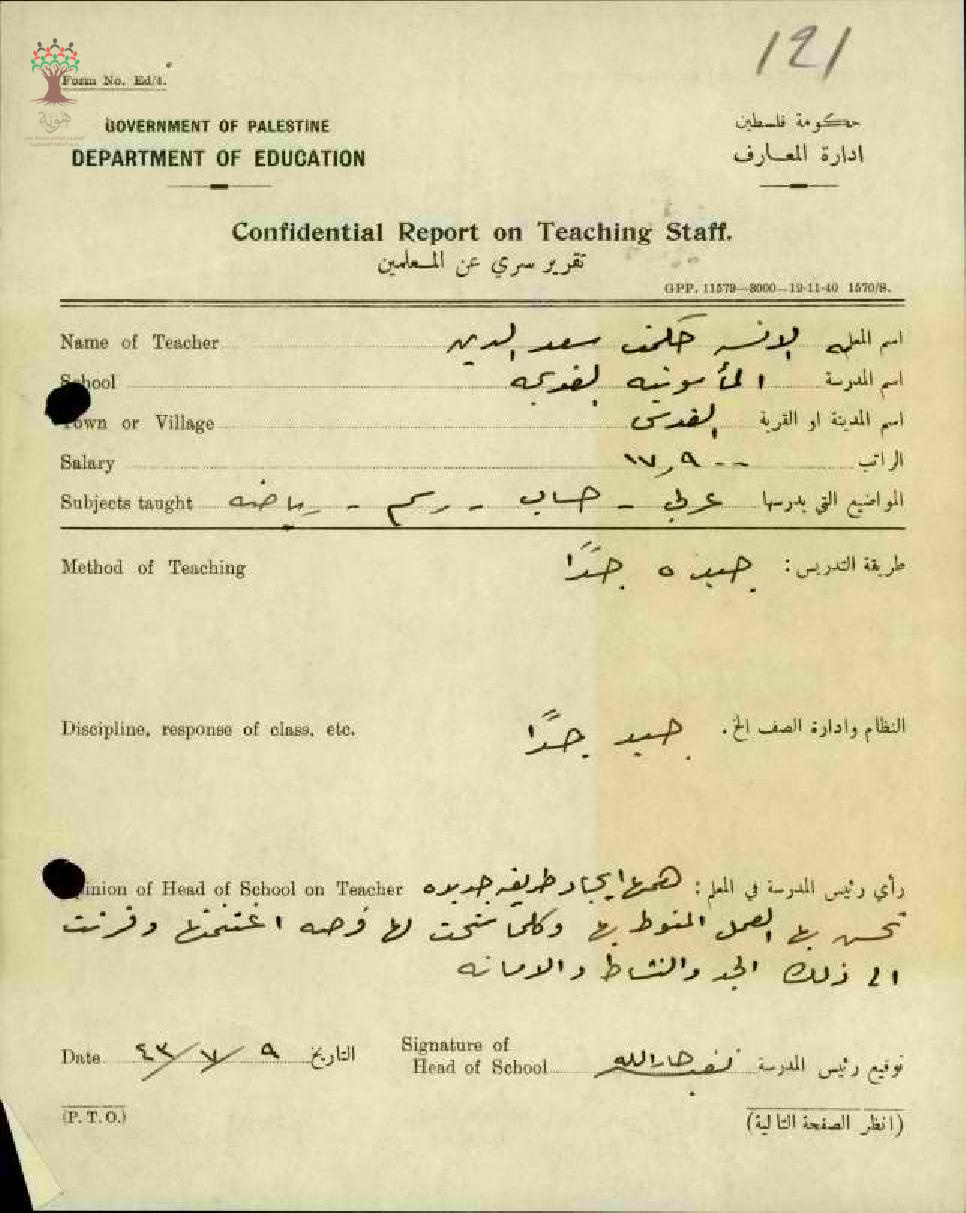 121
Form No. Ed/4.
هوية
GOVERNMENT OF PALESTINE
حكومة فلسطين
DEPARTMENT OF EDUCATION
ادارة المعارف
Confidential Report on Teaching Staff.
تقرير سري عن المعلمين
GPP. 11579—3000—19-11-40 1570/S.
Name of Teacher الانسه حكمت سعد الدين اسم المعلم
School المأمونيه القديمه اسم المدرسة
Town or Village القدس اسم المدينة او القرية
Salary ١٧٫٩٠٠ الراتب
Subjects taught عربي - حساب - رسم - رياضه المواضيع التي يدرسها
Method of Teaching جيده جدًا طريقة التدريس :
Discipline, response of class, etc. جيد جدًا النظام وادارة الصف الخ .
Opinion of Head of School on Teacher رأي رئيس المدرسة في المعلم : همها ايجاد طريقه جديده
تحسن بها العمل المنوط بها وكلما سنحت لها فرصه اغتنمتها وقرنت
الى ذلك الجد والنشاط والامانه
Date ٩/٧/٤٣ التاريخ
Signature of
Head of School توقيع رئيس المدرسة
(P. T. O.)
(انظر الصفحة التالية)